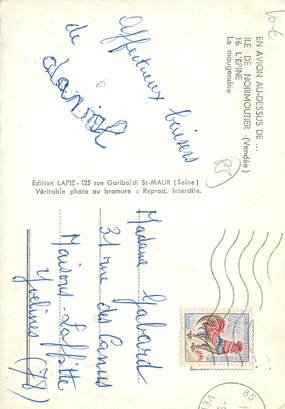 10€
EN AVION AU-DESSUS DE ...
ILE DE NOIRMOUTIER (Vendée)
16. L'EPINE
La maugendrie
(85)
Affectueux baisers
de
Edition LAPIE - 125 rue Garibaldi St-MAUR (Seine)
Véritable photo au bromure : Reprod. Interdite.
Madame Gabard
31 rue des Canus
Maisons-Laffitte
Yvelines (78)
85